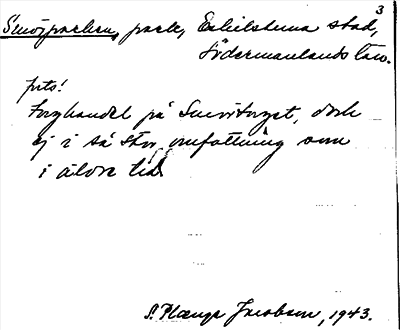 3
Smörparken, park, Eskilstuna stad,
Södermanlands län.
Torghandel på Smörtorget, dock
ej i så stor omfattning som
i äldre tid
S. Plænge Jacobson, 1943.